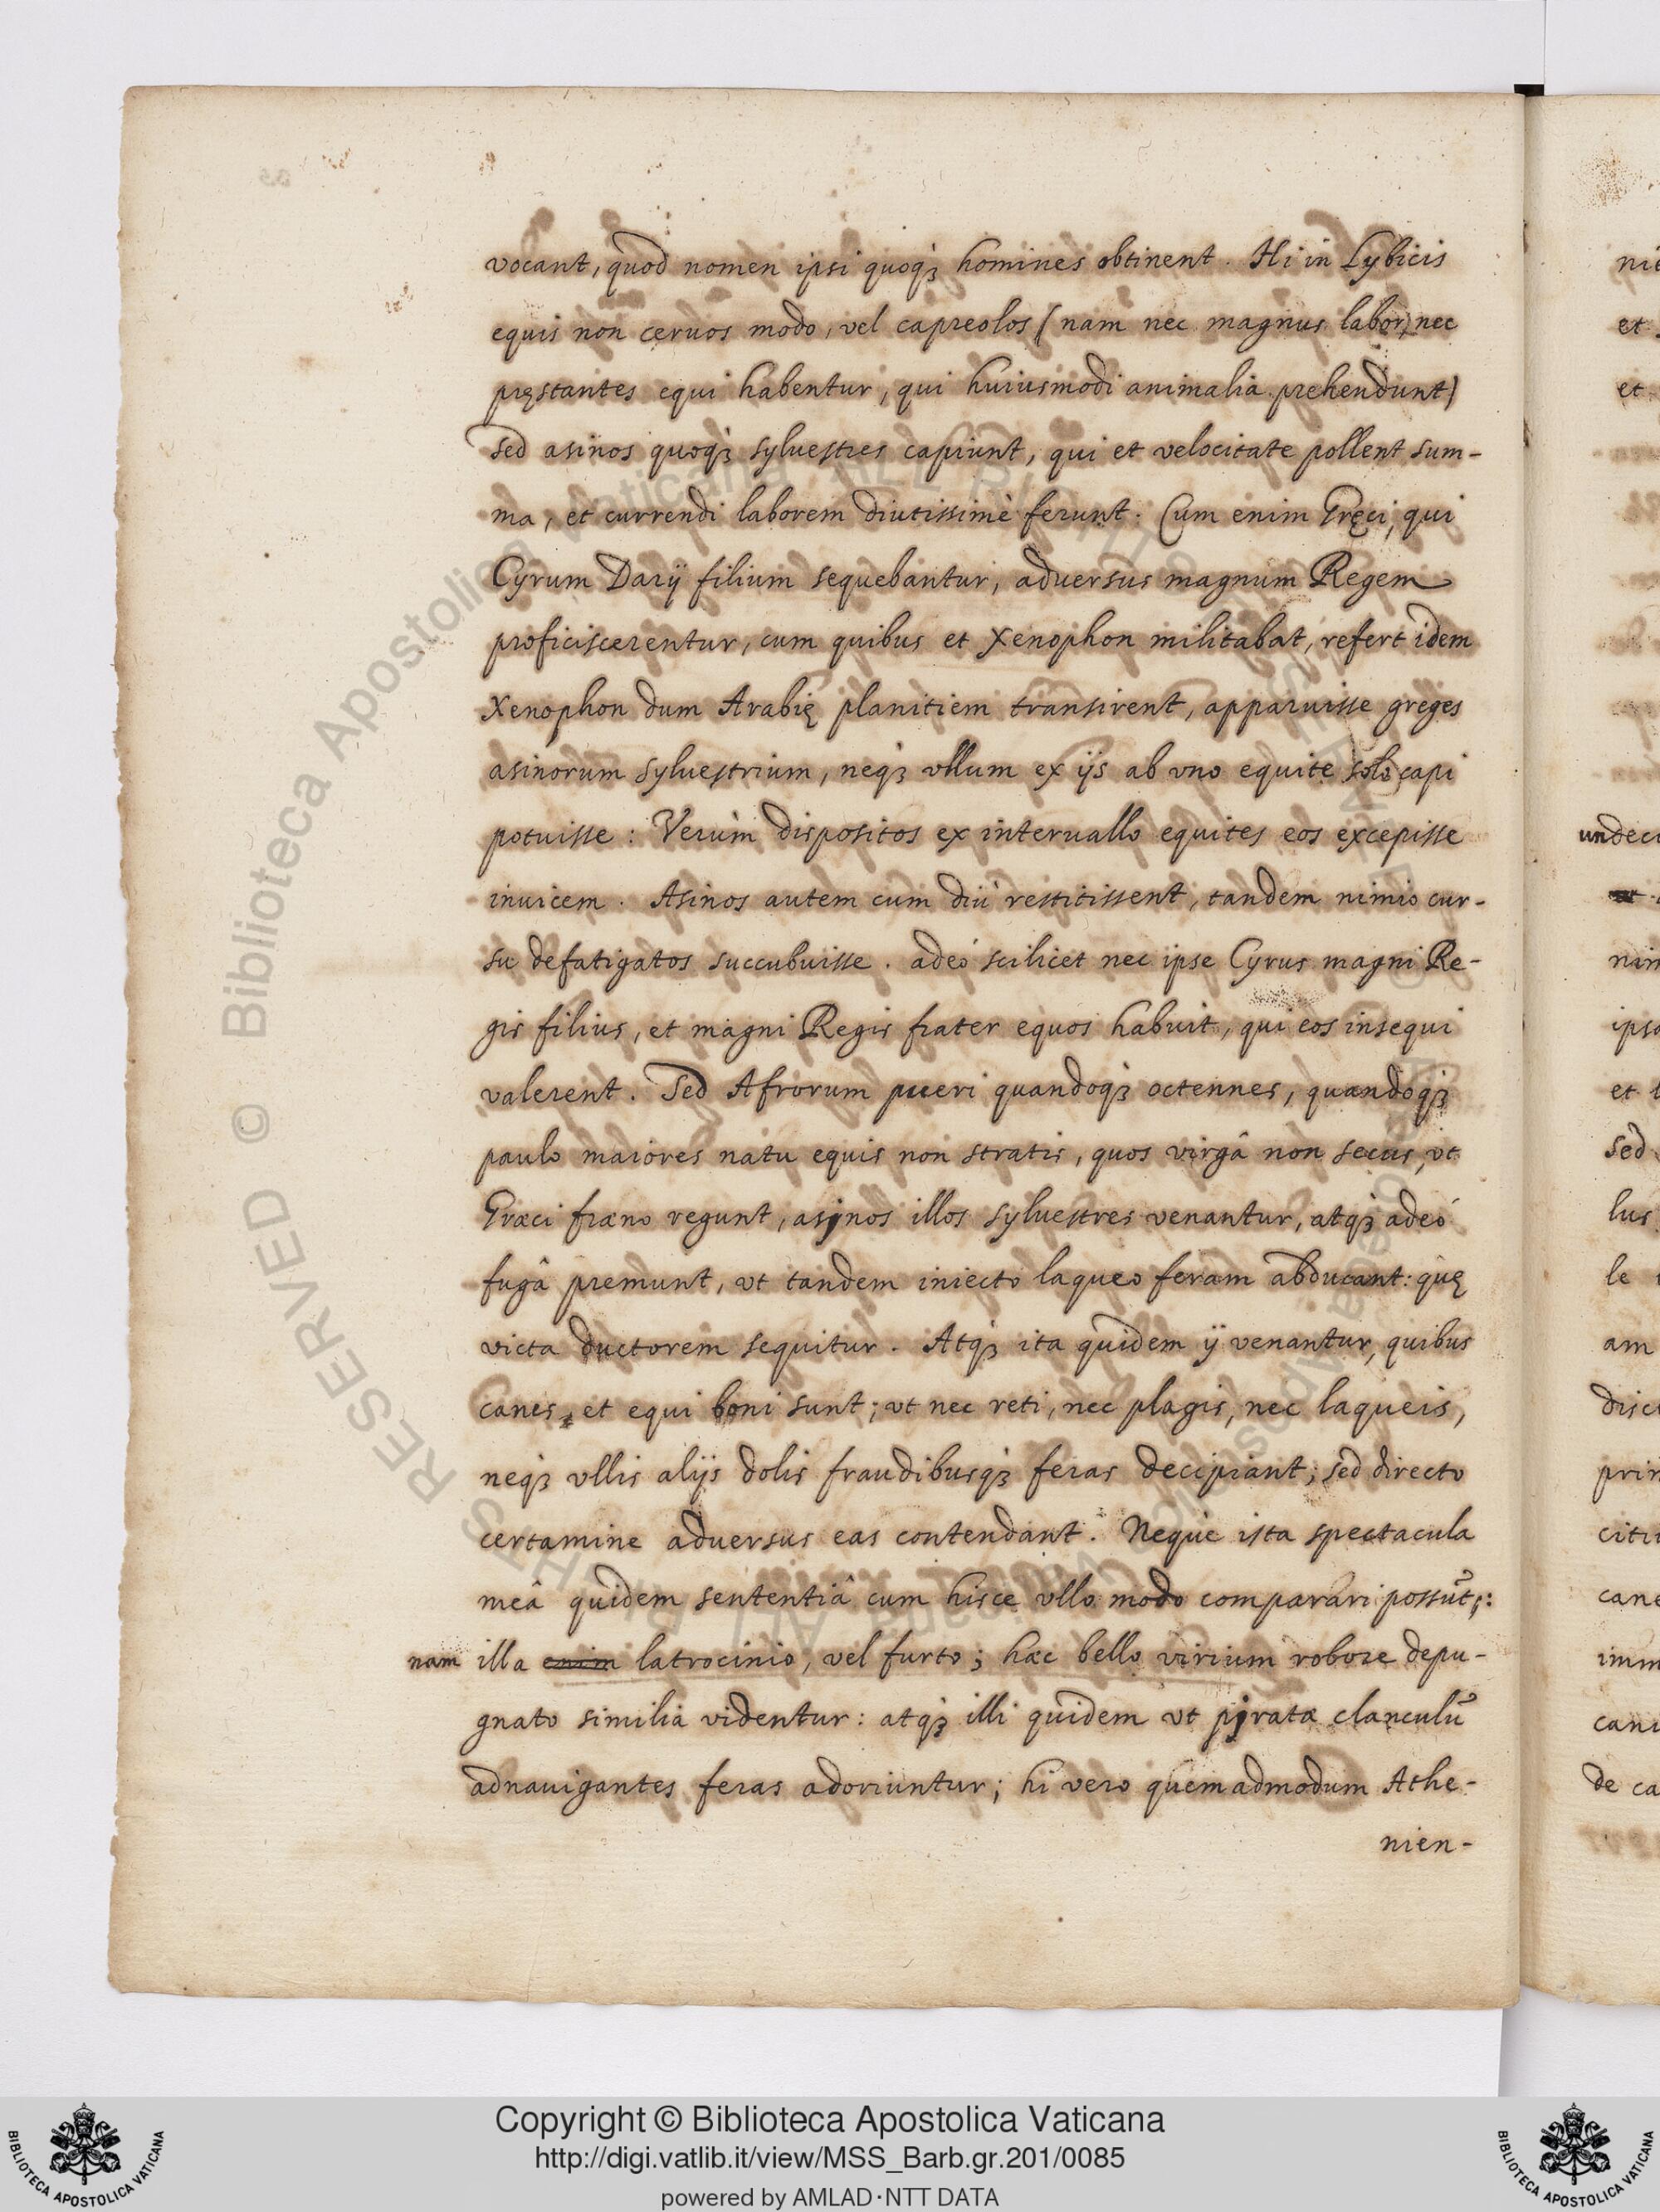 vocant, quod nomen ipsi quoq́ꝫ homines obtinent. Hi in Lybicis
equis non ceruos modo, vel capreolos (nam nec magnus labor, nec
pręstantes equi habentur, qui huiusmodi animalia prehendunt)
sed asinos quoq́ꝫ sylvestres capiunt, qui et velocitate pollent sum-
ma, et currendi laborem diutissimè ferunt. Cum enim Gręci, qui
Cyrum Darÿ filium sequebantur, adversus magnum Regem
proficiscerentur, cum quibus et Xenophon militabat, refert idem
Xenophon dum Arabię planitiem transirent, apparuisse greges
asinorum sylvestrium, neq́ꝫ vllum ex ijs ab vno equite solo capi
potuisse: Verùm dispositos ex intervallo equites eos excepisse
invicem. Asinos autem cum diù restitissent, tandem nimio cur-
su defatigatos succubuisse. adeò scilicet nec ipse Cyrus magni Re-
gis filius, et magni Regis frater equos habuit, qui eos insequi
valerent. Sed Afrorum pueri quandoq́ꝫ octennes, quandoq́ꝫ
paulo maiores natu equis non stratis, quos virgâ non secus, vt
Græci fræno regunt, asinos illos sylvestres venantur, atq́ꝫ adeò
fugâ premunt, vt tandem iniecto laqueo feram abducant: quę
victa ductorem sequitur. Atq́ꝫ ita quidem ÿ venantur, quibus
canes, et equi boni sunt; vt nec reti, nec plagis, nec laqueis,
neq́ꝫ vllis alijs dolis fraudibusq́ꝫ feras decipiant; sed directo
certamine adversus eas contendant. Neque ista spectacula
meâ quidem sententiâ cum hisce vllo modo comparari possūt;:
nam illa enim latrocinio, vel furto; hæc bello virium robore depu-
gnato similia videntur: atq́ꝫ illi quidem vt piratæ clanculū
adnavigantes feras adoriuntur; hi vero quemadmodum Athe-
nien-
nie
et
et
undeci
nim
ipsa
et
sed
lus
le
am
disc
prin
citi
cane
imm
cani
de ca
© Biblioteca Apostolica Vaticana
ALL RIGHTS RESERVED
Copyright © Biblioteca Apostolica Vaticana
http://digi.vatlib.it/view/MSS_Barb.gr.201/0085
powered by AMLAD·NTT DATA
BIBLIOTECA APOSTOLICA VATICANA
BIBLIOTECA APOSTOLICA VATICANA